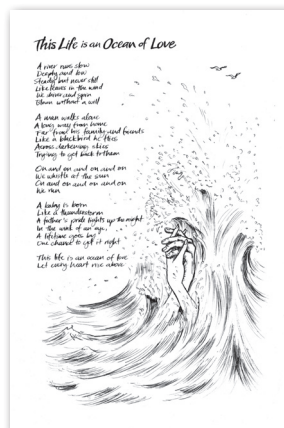 This Life is an Ocean of Love
A river runs slow
Deeply and low
Steady but never still
Like leaves in the wind
We drive and spin
Blown without a will
A man walks alone
A long way from home
Far from his family and friends
Like a blackbird he flies
Across darkening skies
Trying to get back to them
On and on and on and on
We whistle at the sun
On and on and on and on
We run
A baby is born
Like a thunderstorm
A father's pride lights up the night
In the wink of an eye,
A lifetime goes by
One chance to get it right
This life is an ocean of love
Let every heart rise above